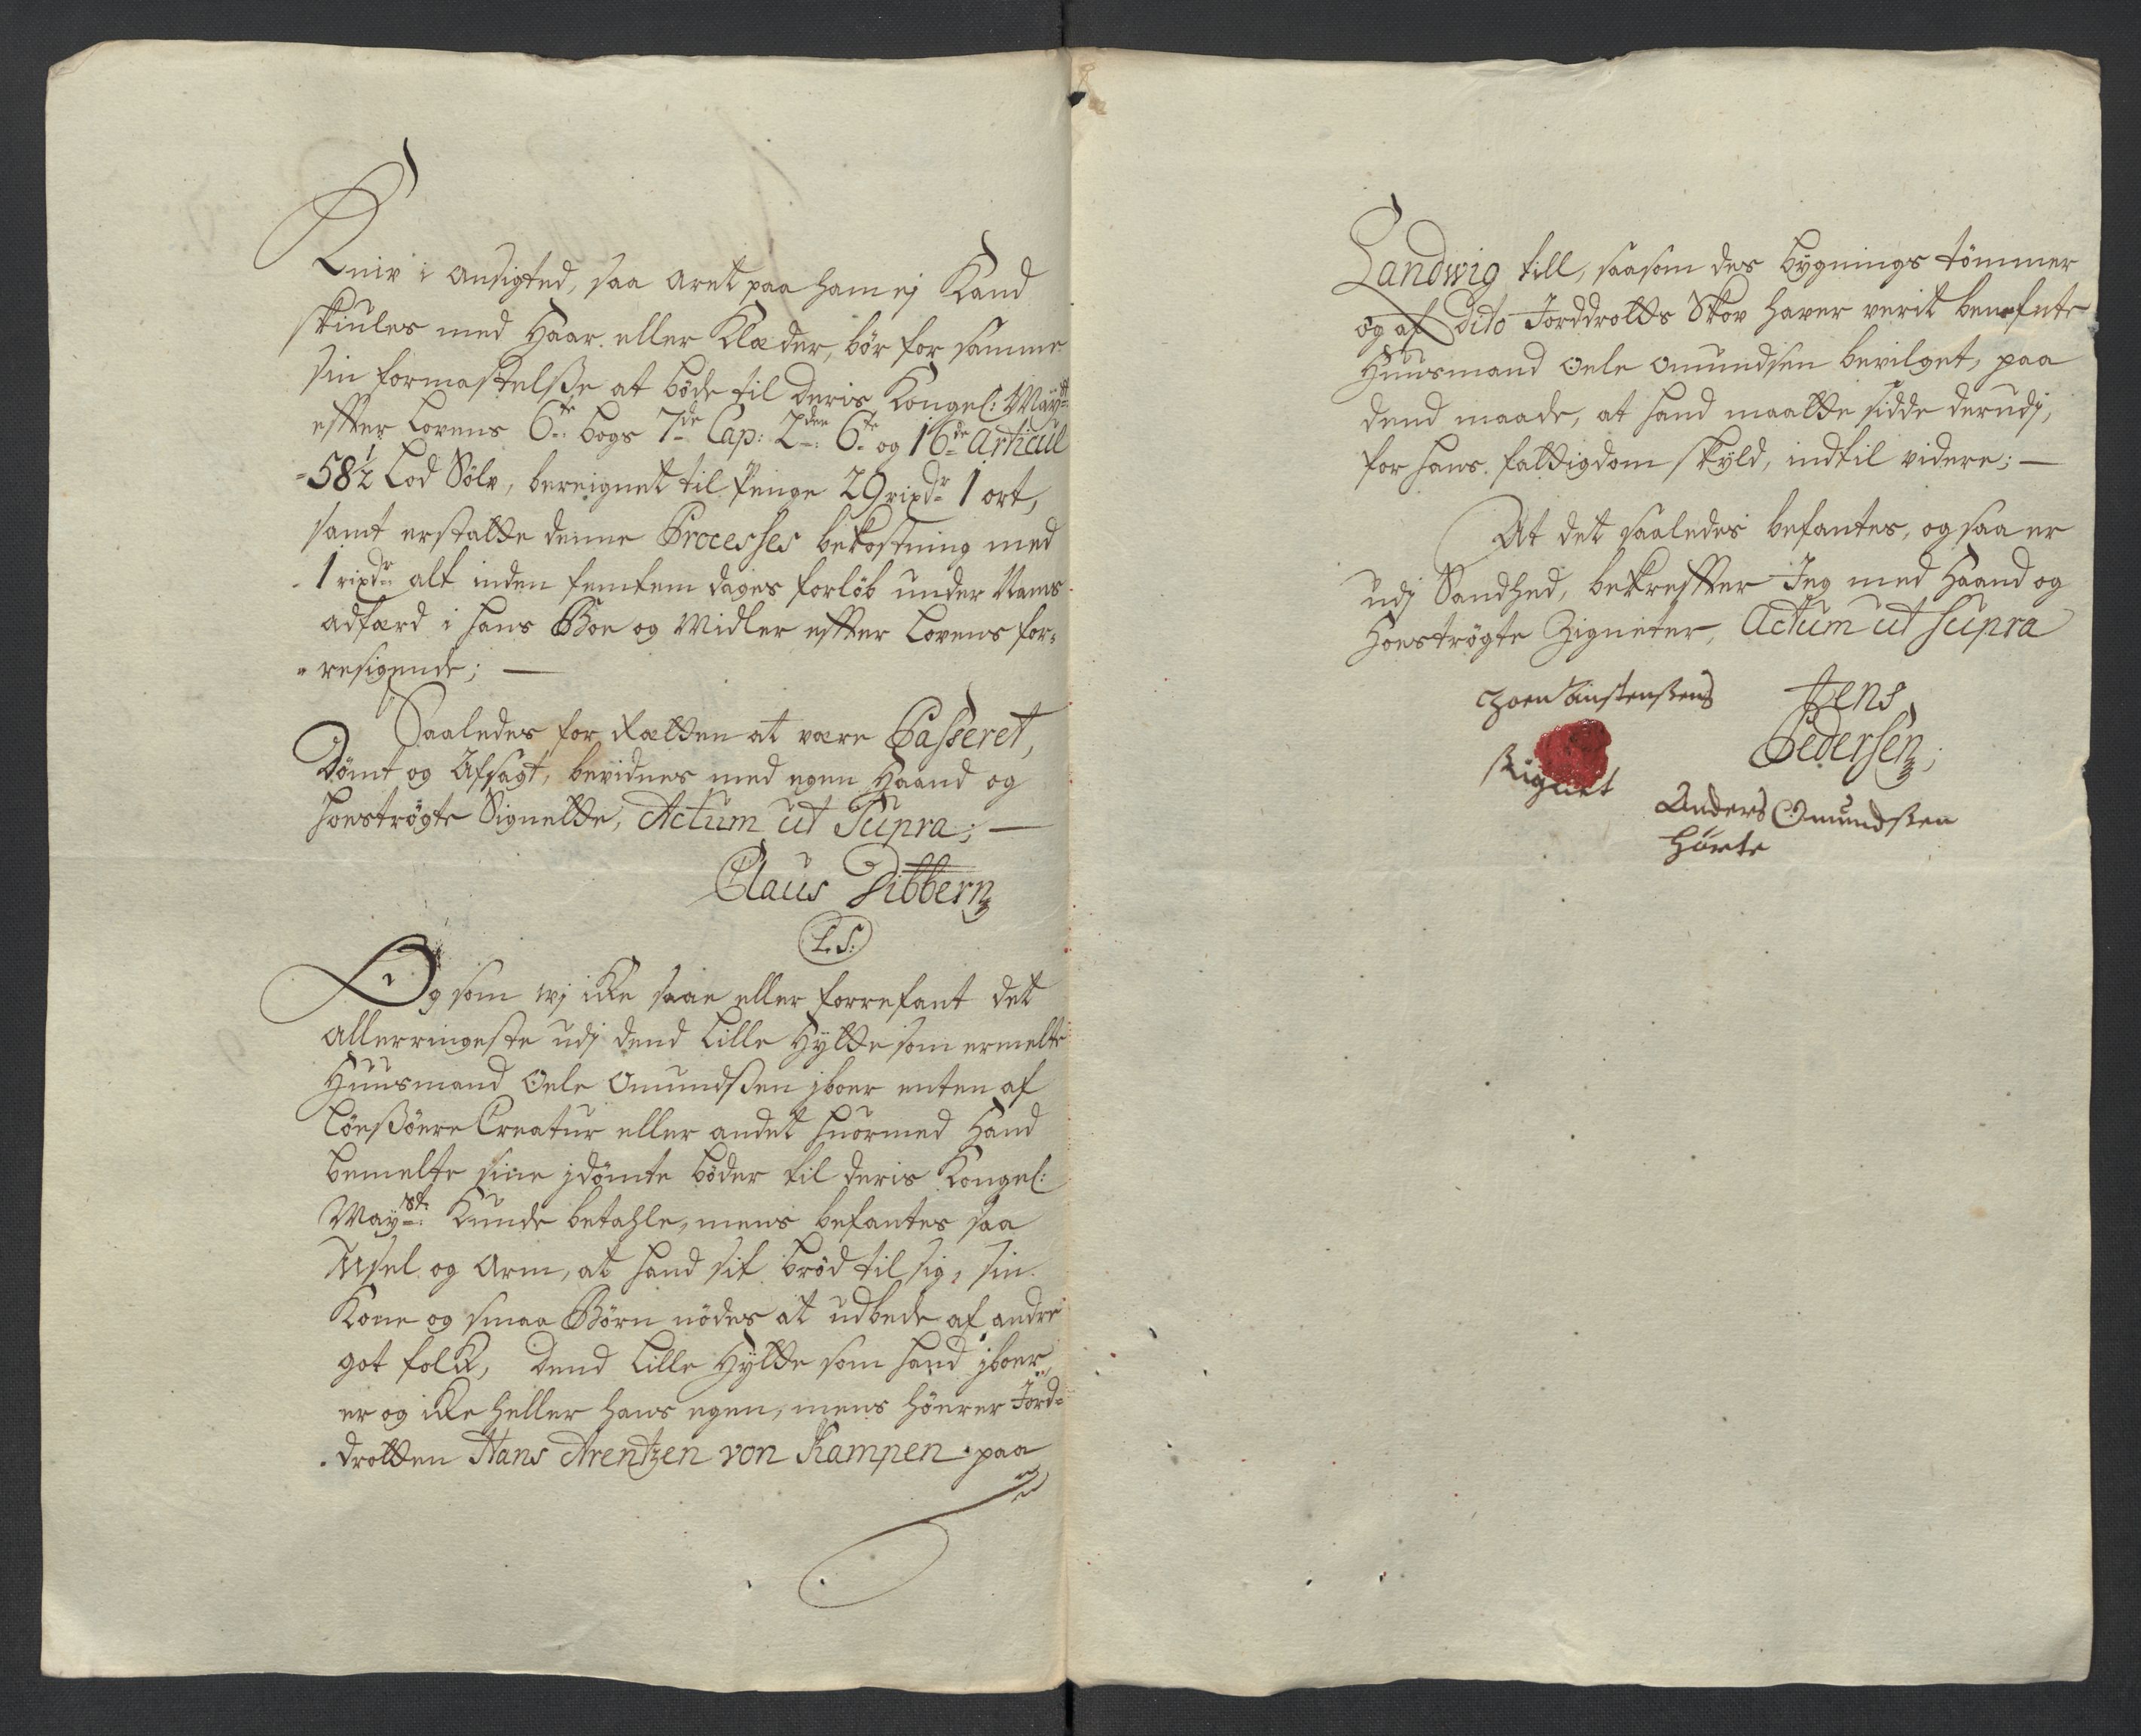 Kniv i Ansigted, saa Aret paa ham ej Kand
skiules med Haar eller Klæder, bør for samme
sin formastelsße at bøde til Deris Kongel: Mayst:
effter Lovens 6te: bogs 7de Cap: 2den: 6te og 16de Articul
58½ Lod Sölv, bereignet til Penge 29 rixdr 1 ort,
samt erstatte denne Processes bekostning med
1 rixdr: alt inden femten dages forløb under Nams
adfærd i hans Boe og Midler effter Lovens for-
resigende; —
Saaledes for Rætten at være Passeret,
Dömt og Afsagt, bevidnes med egen Haand og
hoeströgte Signette, Actum ut Supra; —
Claus Dibbern
L.S.
Og som wj icke saae eller forrefant det
allerringeste udj dend Lille Hytte som ermelte
Huusmand Oele Omundßen jboer enten af
Löesßöere Creatur eller andet huormed Hand
bemelte sine jdömte böder til deris Kongel:
Mayst: Kunde betahle, mens befantes saa
Usel og Arm, at hand sit bröd til sig, sin
Kone og smaa Börn nödes at udbede af andre
got folck, Dend Lille Hytte som hand jboer,
er og icke heller hans egen, mens höerer Jord-
drotten Hans Arentzen von Kampen paa
Landwig till, saasom des bygnings tömmer
og af Dito Jorddrotts Skov haver verit benefnte
Huusmand Oele Omundsen bevilget, paa
dend maade, at hand maatte sidde derudj,
for hans fattigdom skyld, indtil videre; —
At det saaledes befantes, og saa er
udj Sandhed, bekreffter Jeg med Haand og
hoeströgte Zigneter, Actum ut supra
Jens
Pedersen;
ßignet
Anders Omundßen
Hörte